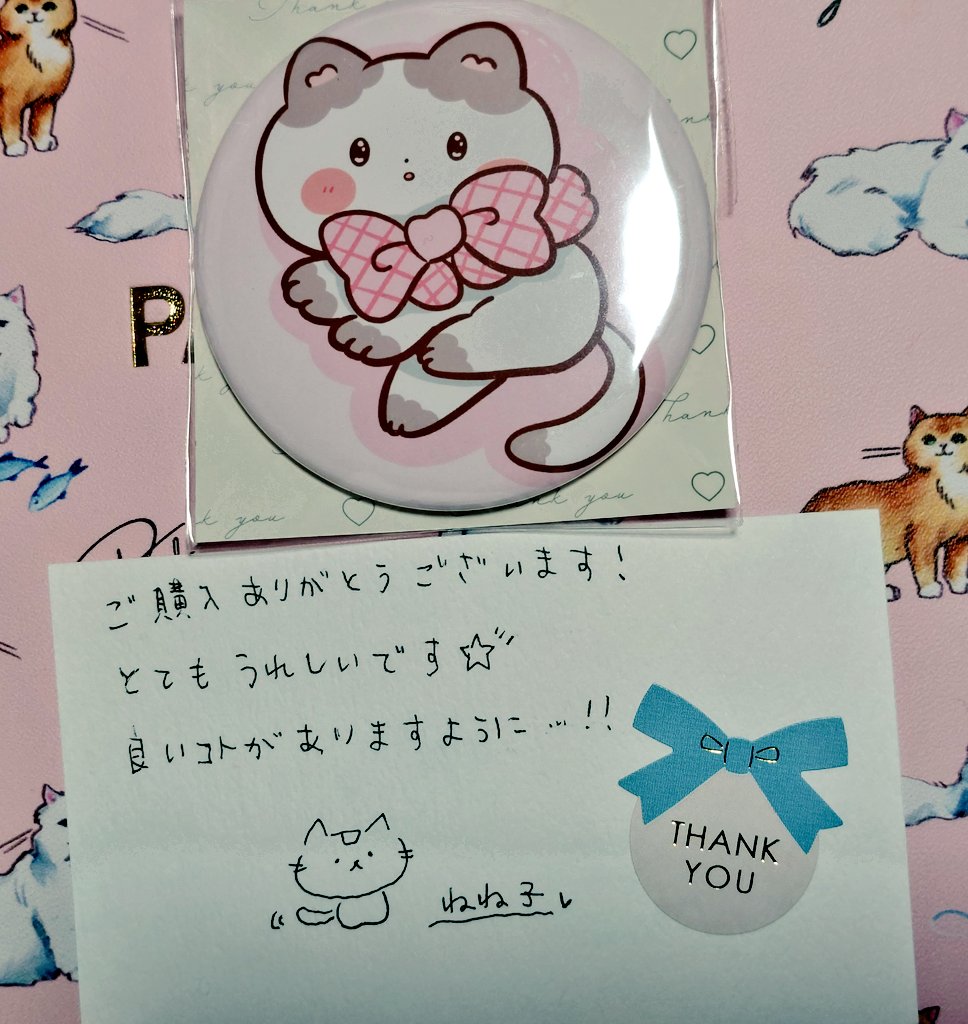 Thank
Thank
Thank you
ご購入ありがとうございます!
とてもうれしいです☆
良いコトがありますように…!!
THANK
YOU
ねね子